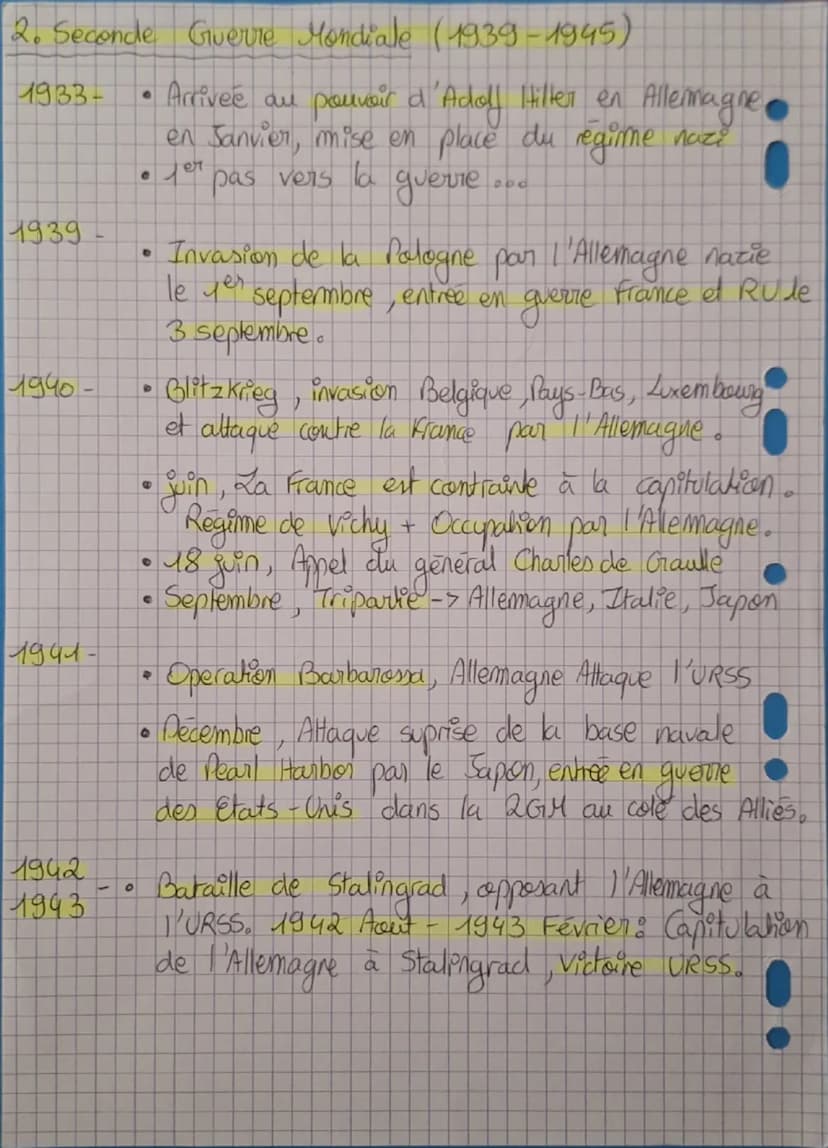 2. Seconde Guerre Mondiale (1939-1945)
1933- • Arrivée au pouvoir d'Adolf Hitler en Allemagne
en Janvier, mise en place du régime nazi
• 1er pas vers la guerre ...
1939 -
• Invasion de la Pologne par l'Allemagne nazie
le 1er septembre, entrée en guerre France et RU le
3 septembre.
1940 - • Blitzkrieg, invasion Belgique, Pays-Bas, Luxembourg
et attaque contre la France par l'Allemagne.
• juin, La France est contrainte à la capitulation.
Régime de Vichy + Occupation par l'Allemagne.
• 18 juin, Appel du général Charles de Gaulle
• Septembre, Tripartie -> Allemagne, Italie, Japon
1941-
• Operation Barbarossa, Allemagne Attaque l'URSS
• Décembre, Attaque suprise de la base navale
de Pearl Harbor par le Japon, entrée en guerre
des Etats-Unis dans la 2GM au coté des Alliés.
1942
1943 - • Bataille de Stalingrad, opposant l'Allemagne à
l'URSS. 1942 Aout - 1943 Février : Capitulation
de l'Allemagne à Stalingrad, Victoire URSS.